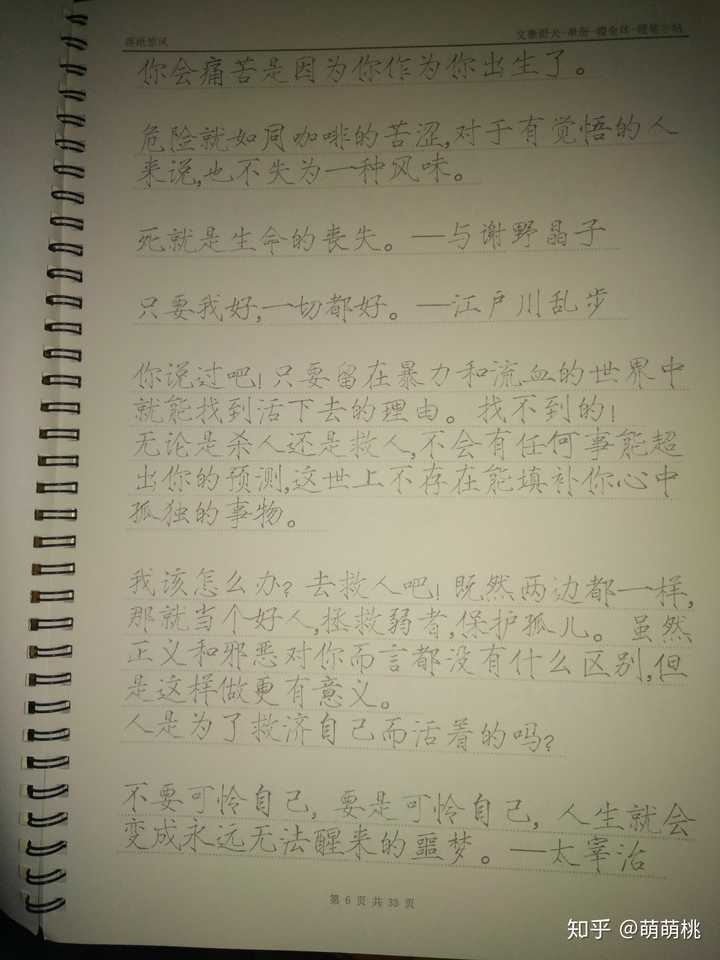 文豪野犬-单册-瘦金体-硬笔字帖
你会痛苦是因为你作为你出生了。
危险就如同咖啡的苦涩,对于有觉悟的人
来说,也不失为一种风味。
死就是生命的丧失。—与谢野晶子
只要我好,一切都好。—江户川乱步
你说过吧!只要留在暴力和流血的世界中
就能找到活下去的理由。找不到的!
无论是杀人还是救人,不会有任何事能超
出你的预测,这世上不存在能填补你心中
孤独的事物。
我该怎么办?去救人吧!既然两边都一样,
那就当个好人,拯救弱者,保护孤儿。虽然
正义和邪恶对你而言都没有什么区别,但
是这样做更有意义。
人是为了救济自己而活着的吗?
不要可怜自己,要是可怜自己,人生就会
变成永远无法醒来的噩梦。—太宰治
第 6 页 共 33 页
知乎 @萌萌桃